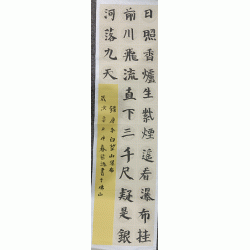 日照香爐生紫煙遙看瀑布挂
前川飛流直下三千尺疑是銀
河落九天
李白望山瀑布